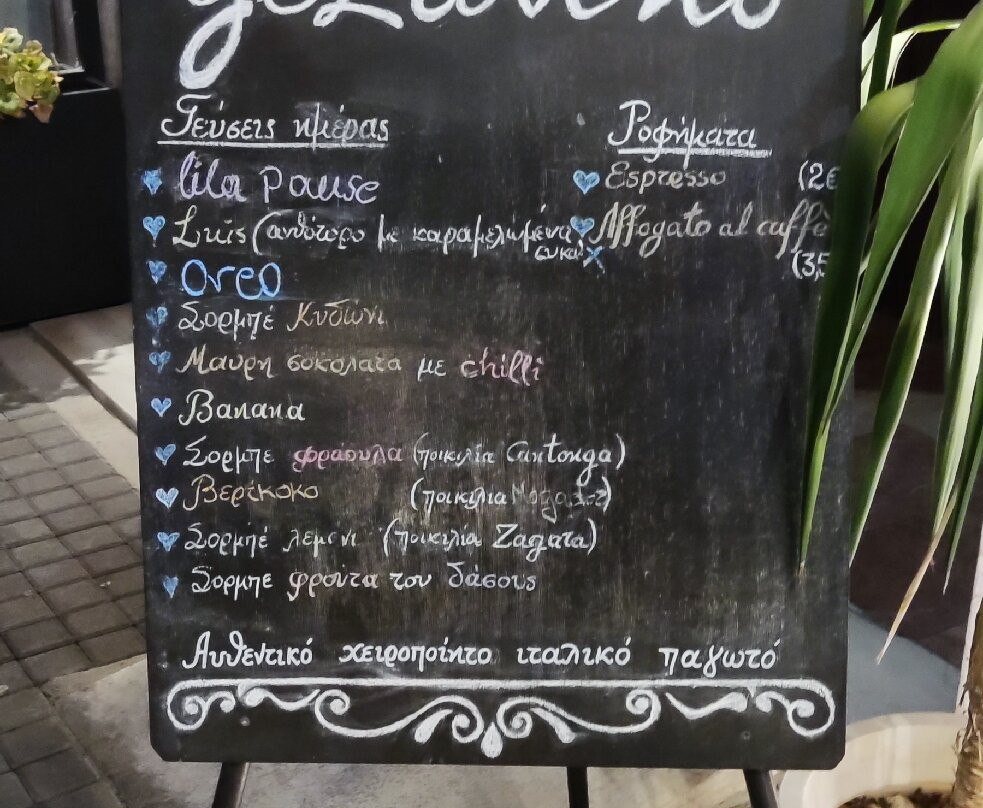 Γεύσεις ημέρας
lila Pause
Luis (ανθότυρο με καραμελωμένα
συκα)
Oreo
Σορμπέ Κυδώνι
Μαυρη σοκολατα με chilli
Banana
Σορμπε φραουλα (ποικιλία Camtonga)
Βερίκοκο (ποικιλια
Σορμπέ λεμονι (ποικιλία Zagara)
Σορμπε φρουτα του δάσους
Ροφήματα
Espresso (2€
Affogato al caffè
(3,5
Αυθεντικό χειροποίητο ιταλικό παγωτό